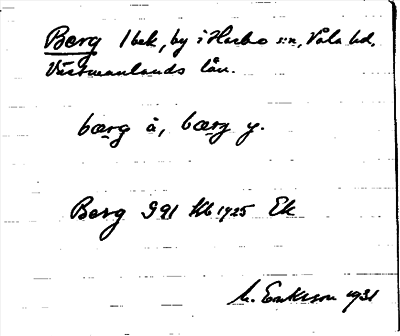 Berg 1 bek, by i Harbo sn, Våla hd,
Västmanlands län.
bærg å, bærg y.
Berg S 91 Hb 1925 Ek
M. Eriksson 1931